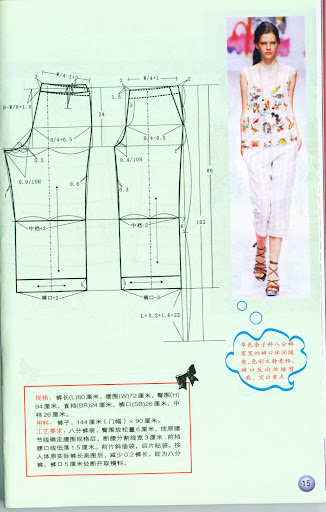 W/4-1+2
W/4+1
2
1.5
1
H-W/8+1.5
24
H/4+0.5
H/4-0.5
0.5
0.4/10H
0.9/10H
0.6
0.3
80
中裆+2
中裆-2
102
裤口+2
裤口-2
L+0.2+1.6=22
单色条子料八分裤
宽宽的裤口休闲随
意,色彩文静素雅。
裤口反向丝缕剪
裁,突出重点
规格: 裤长(L)80厘米,腰围(W)72厘米,臀围(H)
94厘米,直裆(BR)24厘米,裤口(SB)26厘米,中
裆26厘米。
用料: 裤子:144厘米(门幅)×90厘米。
工艺要求: 八分裤装。臀围放松量6厘米,按原腰
节线确定腰围规格后,断腰分割线宽3厘米,前裆
腰口线低落1.5厘米。前片斜插袋,后片贴袋。按
人体原实际裤长画图后,减少0.2裤长,即为八分
裤。裤口5厘米处断开取横料。
15